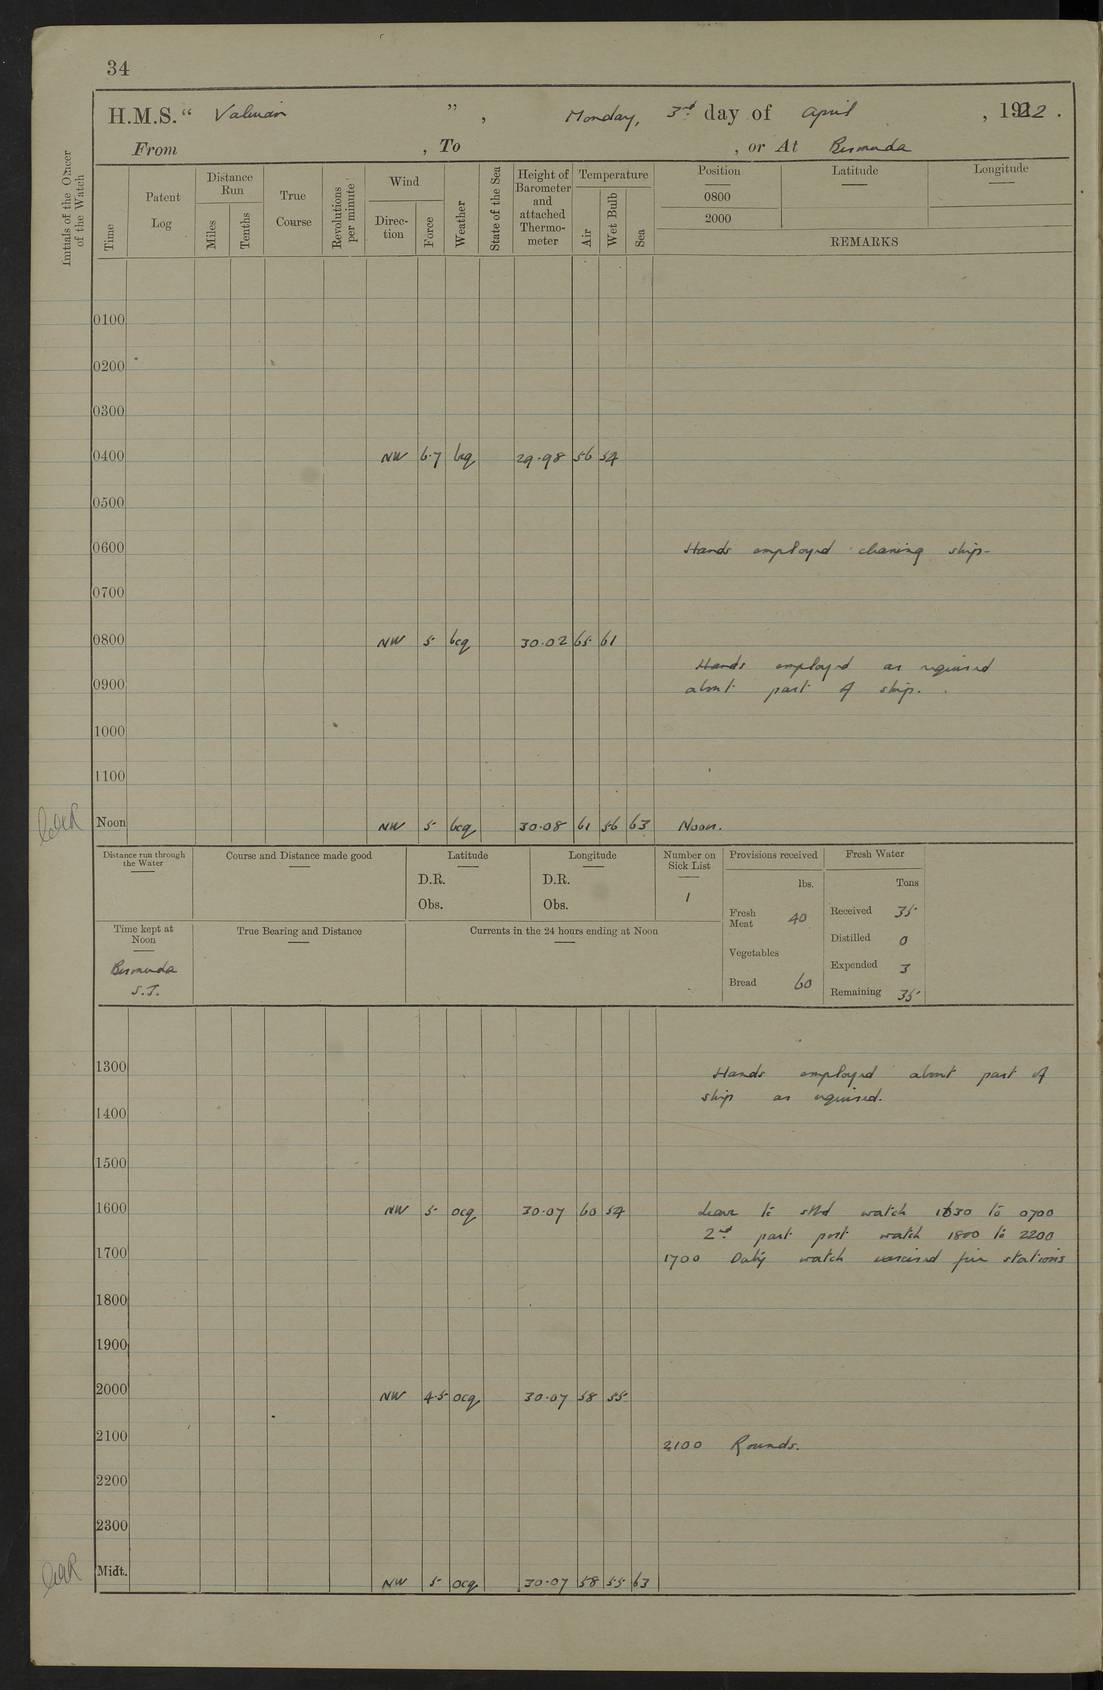 34
H.M.S. " Valerian ", Monday, 3rd day of April, 1922.
From , To , or At Bermuda
Initials of the Officer of the Watch
Time
Patent Log
Distance Run
Miles
Tenths
True Course
Revolutions per minute
Wind
Direction
Force
Weather
State of the Sea
Height of Barometer and attached Thermometer
Temperature
Air
Wet Bulb
Sea
Position Latitude Longitude
0800
2000
REMARKS
0100
0200
0300
0400 NW 6.7 bcq 29.98 56 54
0500
0600 Hands employed cleaning ship-
0700
0800 NW 5 bcq 30.02 65 61
Hands employed as required
0900 about part of ship.
1000
1100
Noon NW 5 bcq 30.08 61 56 63 Noon.
Distance run through the Water
Course and Distance made good
Latitude
D.R.
Obs.
Longitude
D.R.
Obs.
Number on Sick List
1
Provisions received
lbs.
Fresh Meat 40
Vegetables
Bread 60
Fresh Water
Tons
Received 35
Distilled 0
Expended 3
Remaining 35
Time kept at Noon
Bermuda
S.T.
True Bearing and Distance
Currents in the 24 hours ending at Noon
1300 Hands employed about part of
ship as required.
1400
1500
1600 NW 5 ocq 30.07 60 54 Leave to stbd watch 1630 to 0700
2nd part port watch 1800 to 2200
1700 1700 Duty watch exercised fire stations
1800
1900
2000 NW 4.5 ocq 30.07 58 55
2100 2100 Rounds.
2200
2300
Midt. NW 5 ocq 30.07 58 55 63